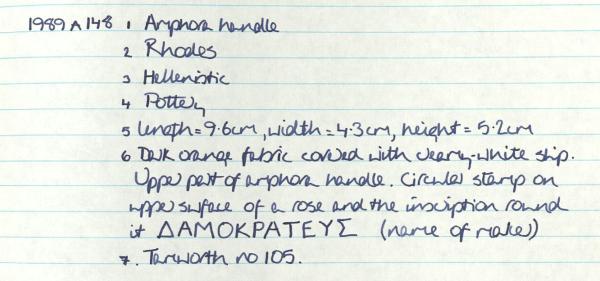 1989 A 148 1 Amphora handle
2 Rhodes
3 Hellenistic
4 Pottery
5 length = 9.6cm, width = 4.3cm, height = 5.2cm
6 Dark orange fabric covered with creamy-white slip.
Upper part of amphora handle. Circular stamp on
upper surface of a rose and the inscription round
it ΔΑΜΟΚΡΑΤΕΥΣ (name of maker)
7. Tamworth no 105.